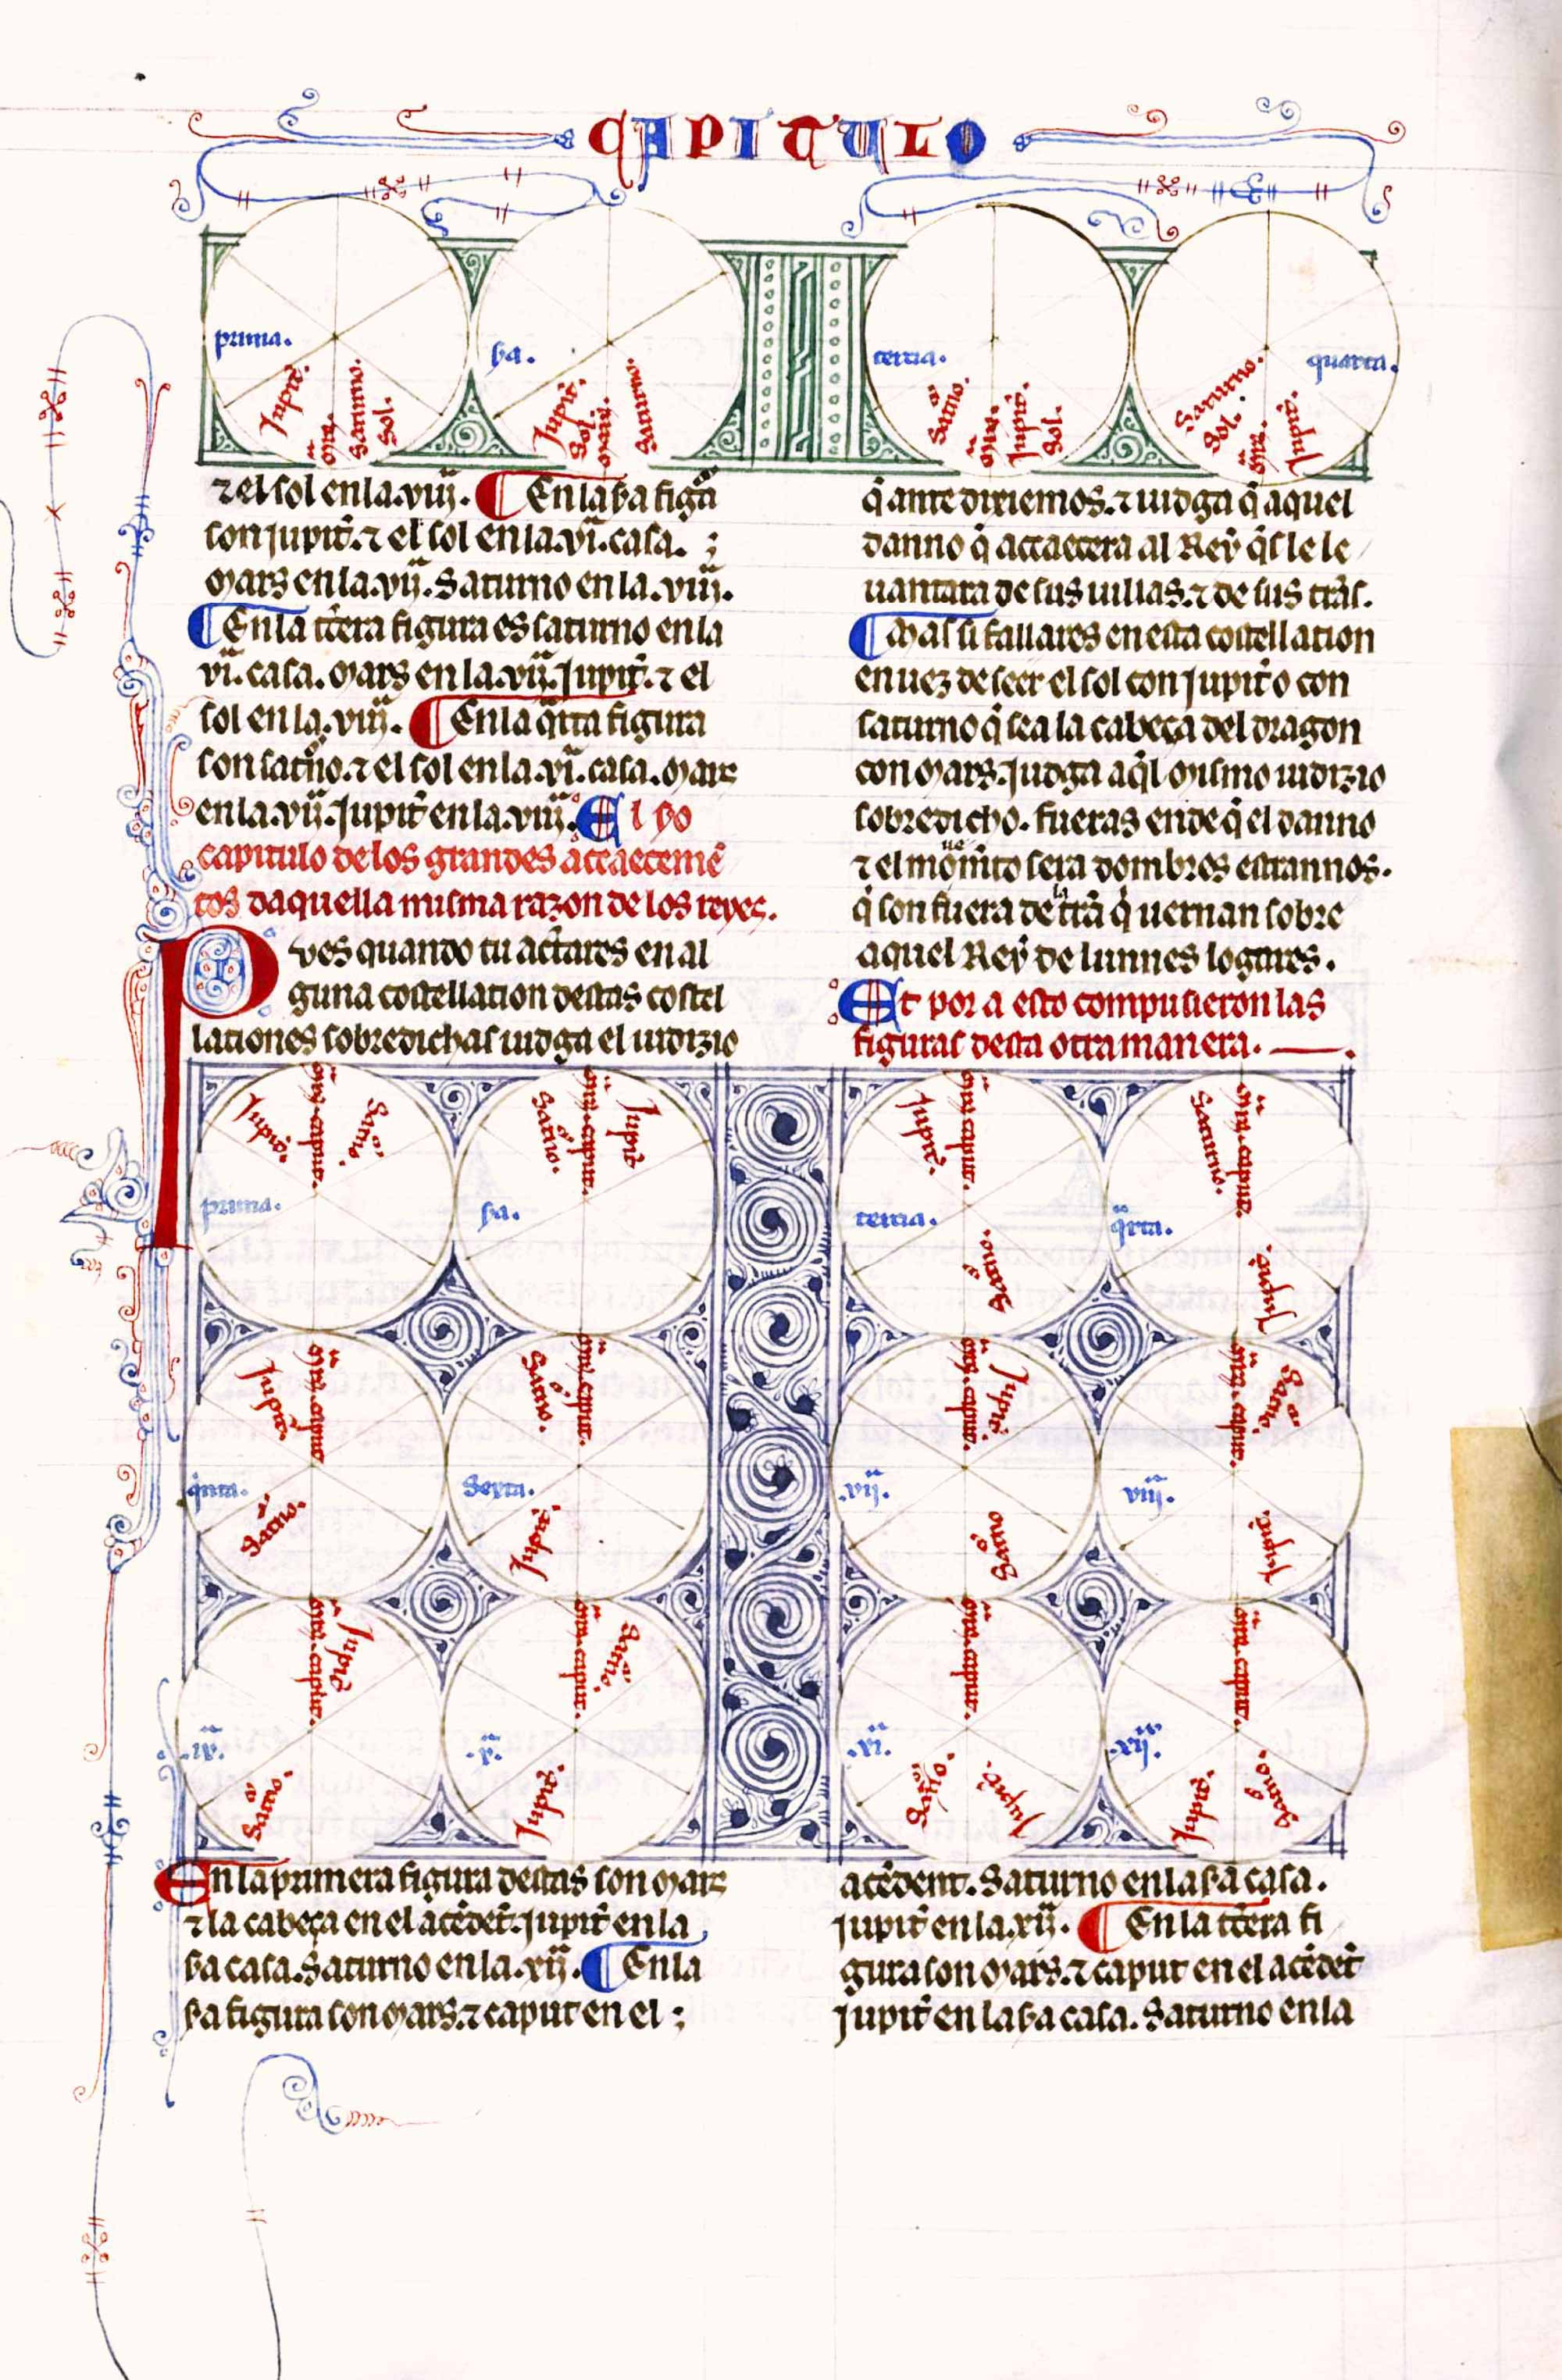 CAPITULO
prima.
Jupit̉.
Mrs.
Saturno.
Sol.
ẞa.
Jupit̉.
Sol.
Mars.
Saturno.
tercia.
Satno.
Mrs.
Jupit̉.
Sol.
quarta.
Saturno.
Sol.
Mrs.
Jupit̉.
⁊ el sol en la .viij. ¶ En la ẞa figã
son jupit̉. ⁊ el sol en la .vi. casa.
Mars en la .vij. Saturno en la .viij.
¶ En la tc̉era figura es saturno en la
vi. casa. Mars en la .vij. Jupit̉. ⁊ el
sol en la .viij. ¶ En la q̃rta figura
son satño. ⁊ el sol en la .vi. casa. Mars
en la .vij. Jupit̉ en la .viij. El ẞo
capitulo de los grandes accaecemẽ
tos daquella misma razon de los reyes.
Pues quando tu actares en al
guna costellation destas costel
lationes sobredichas iudga el iudizio
q̃ ante dixiemos. ⁊ iudga q̃ aquel
danno q̃ accaecera al Rey q̃ se le le
uantara de sus uillas. ⁊ de sus tr̃as.
¶ Mas si fallares en esta costellation
en uez de seer el sol con jupit̉ o con
saturno q̃ sea la cabeça del dragon
con Mars. judga aq̃l Mismo iudizio
sobredicho. fueras ende q̃ el danno
⁊ el mouim̃to sera dombres estrannos.
q̃ son fuera de la tr̃a q̃ uernan sobre
aquel Rey de lunnes logares.
Et por a esto compusieron las
figuras desta otra manera.
prima.
Jupit̉.
Mrs. caput.
Satno.
ẞa.
Satno.
Mrs. caput.
Jupit̉
tercia.
Jupit̉.
Mrs. caput.
Satno.
q̃rta.
Saturno.
Mrs. caput.
Jupit̉.
q̃nta.
Jupit̉.
Mrs. caput
Satno.
Sexta.
Satno.
Mrs. caput.
Jupit̉.
.vij.
Mrs. caput.
Jupit̉
Satno
viij.
Mrs. caput.
Satno
Jupit̉.
.ix.
Mrs. caput.
Jupit̉
Satno.
.x.
Mrs. caput.
Satno.
Jupit̉.
.xi.
Mrs. caput.
Satno.
Jupit̉.
.xij.
Mrs. caput.
Jupit̉.
Satno.
En la primera figura destas son Mars
⁊ la cabeça en el acc̃det̃. jupit̉ en la
ẞa casa. Saturno en la .xij. ¶ En la
ẞa figura son Mars. ⁊ caput en el
acc̃dent. Saturno en la ẞa casa.
jupit̉ en la .xij. ¶ En la tc̉era fi
gura son Mars. ⁊ caput en el acc̃det̃
jupit̉ en la ẞa casa. Saturno en la